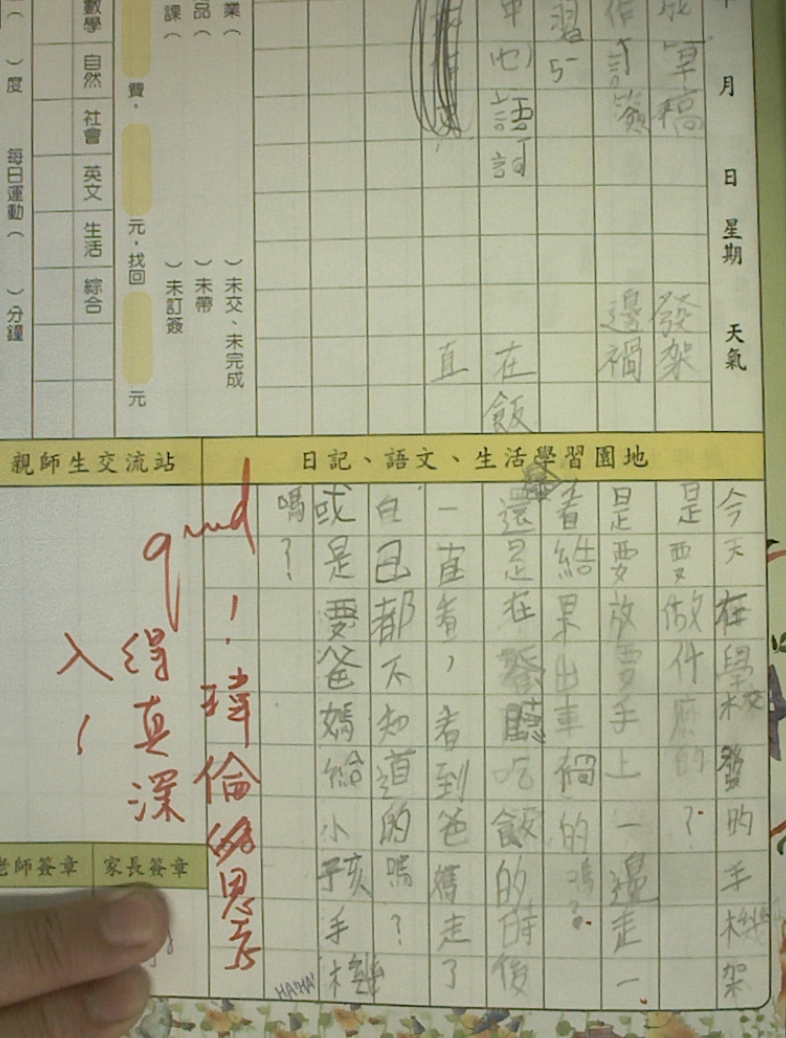 月 日 星期 天氣
成草稿 發架
作訂簽 邊禍
習5
中心語詞 在飯
直
業(
)未交、未完成
品(
)未帶
課(
)未訂簽
費,
元,找回
元
數學
自然
社會
英文
生活
綜合
)度
每日運動(
)分鐘
日記、語文、生活學習園地
今天在學校發的手機架
是要做件麼的?
是要放要手上一邊走一
看結果出車禍的嗎?
還是在餐聽吃飯的時後
一直看,看到爸媽走了
自己都不知道的嗎?
或是要爸媽給小孩手機
嗎?
HA!HA!
親師生交流站
good!瑋倫的思考
得真深
入!
老師簽章
家長簽章